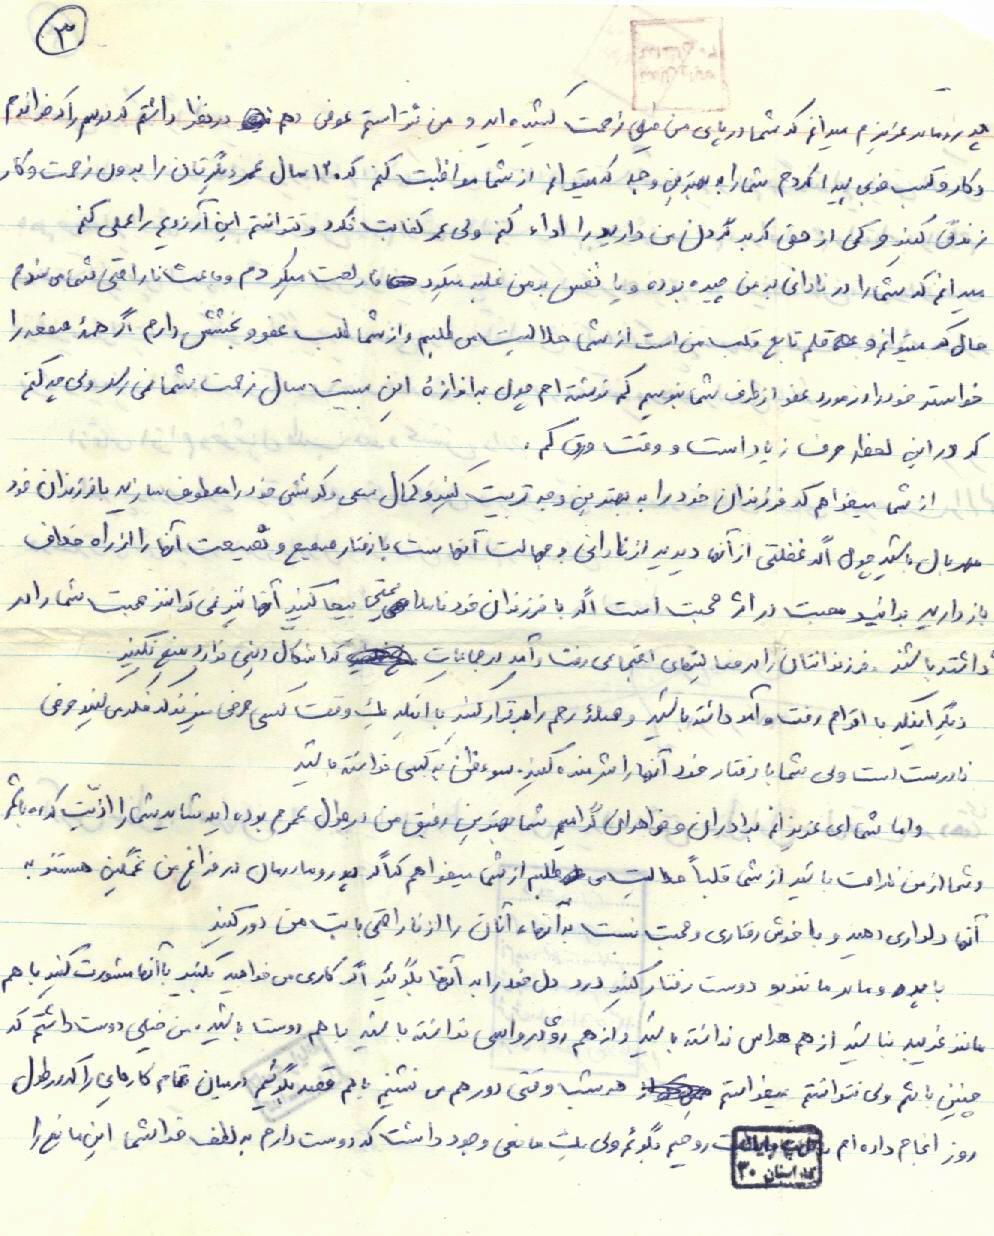 ۳
پدر و مادر عزیزم میدانم که شما در پای من خیلی زحمت کشیده اید و من نتوانستم عوض دهم در نظر داشتم که درسم را که خواندم
و کار و کسب خوبی پیدا کردم شما را به بهترین وجه که میتوانم از شما مواظبت کنم که ۱۲۰ سال عمر دیگرتان را بدون زحمت و کار
زندگی کنید و کمی از حقی که بر گردن من دارید را اداء کنم ولی عمر کفایت نکرد و نتوانستم این آرزویم را عملی کنم
میدانم که شما را در نادانی به من چیره بوده و یا نفس بر من غلبه میکرد ناراحت میکردم و باعث ناراحتی شما می شدم
حال که میتوانم و قلم تابع قلب من است از شما حلالیت می طلبم و از شما طلب عفو و بخشش دارم اگر همه صفحه را
خواسته خود را در مورد عفو از طرف شما بنویسم کم نوشته ام چون به اندازهٔ این بیست سال زحمت شما نمی رسد ولی چه کنم
که در این لحظه حرف زیاد است و وقت و ورق کم .
از شما میخواهم که فرزندان خود را به بهترین وجه تربیت کنید و کمال سعی و کوشش خود را معطوف سازید با فرزندان خود
مهربان باشید چون اگر غفلتی از آنها دیدید از نادانی و جهالت آنهاست با رفتار صحیح و نصیحت آنها را از راه خلاف
باز دارید بدانید محبت در اثر محبت است اگر با فرزندان خود بیجا کنید آنها نیز نمی توانند محبت شما را در
داشته باشند . فرزندانتان را در فعالیتهای اجتماعی رفت و آمد در جماعات که اشکال دینی ندارد منع نکنید
دیگر اینکه با اقوام رفت و آمد داشته باشید و صلهٔ رحم را برقرار کنید با اینکه یک وقت کسی حرفی میزند که فکر می کنید حرفی
نادرست است ولی شما با رفتار خود آنها را شرمنده کنید . سوء ظن به کسی نداشته باشید
و اما شما ای عزیزانم برادران و خواهران گرامیم شما بهترین رفیق من در طول عمرم بوده اید شاید شما را اذیت کرده باشم
و شما از من ناراحت باشید از شما قلباً حلالیت می طلبم از شما میخواهم که اگر پدر و مادرمان در فراغ من غمگین هستند به
آنها دلداری دهید و با خوش رفتاری و محبت نسبت به آنها، آنان را از ناراحتی بابت من دور کنید
با پدر و مادر مانند دو دوست رفتار کنید درد دل خود را به آنها بگوئید اگر کاری می خواهید بکنید با آنها مشورت کنید با هم
مانند غریبه نباشید از هم هراس نداشته باشید و از هم رودرواسی نداشته باشید با هم دوست باشید . من خیلی دوست داشتم که
چنین باشم ولی نتوانستم میخواستم هر شب وقتی دور هم می نشینیم با هم قصه بگوئیم درمیان تمام کارهایی را که در طول
روز انجام داده ام روحیم بگویم ولی یک مانعی وجود داشت که دوست دارم به لطف خدا شما این مانع را
کد استان ۳۰